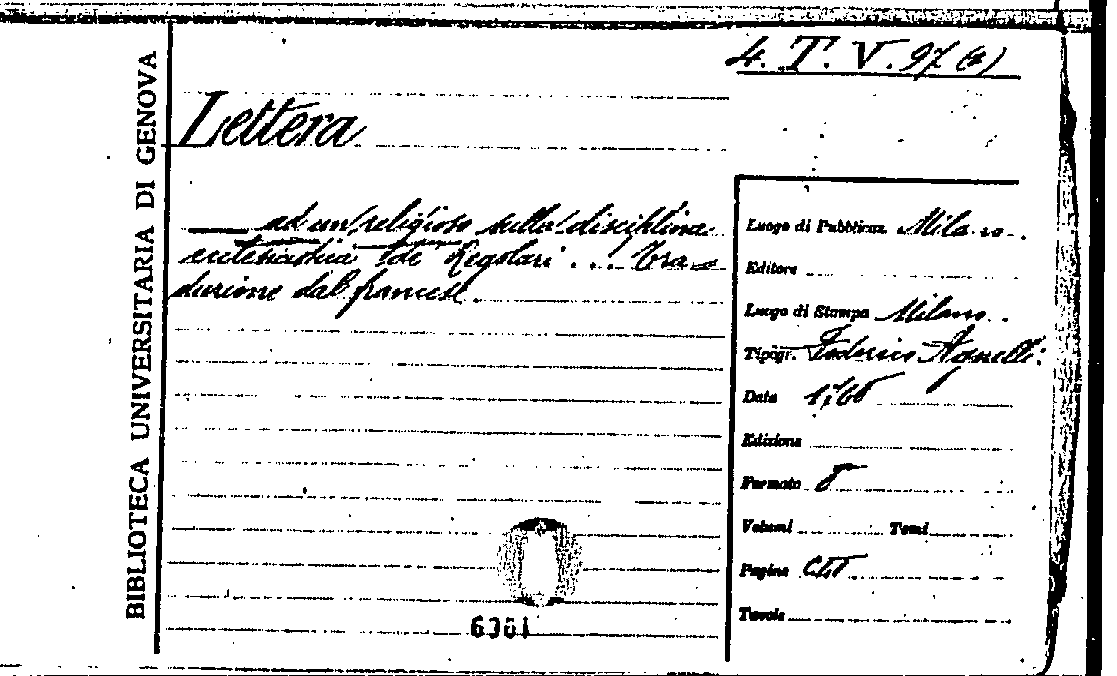 4. T. V. 97 (2)
BIBLIOTECA UNIVERSITARIA DI GENOVA
Lettera
ad un religioso sulla disciplina
ecclesiastica de Regolari ... Tra=
duzione dal francese
Luogo di Pubblicaz. Milano.
Editore
Luogo di Stampa Milano.
Tipogr. Federico Agnelli.
Data
Edizione
Formato 8
Volumi Tomi
Pagine
Tavole
6361